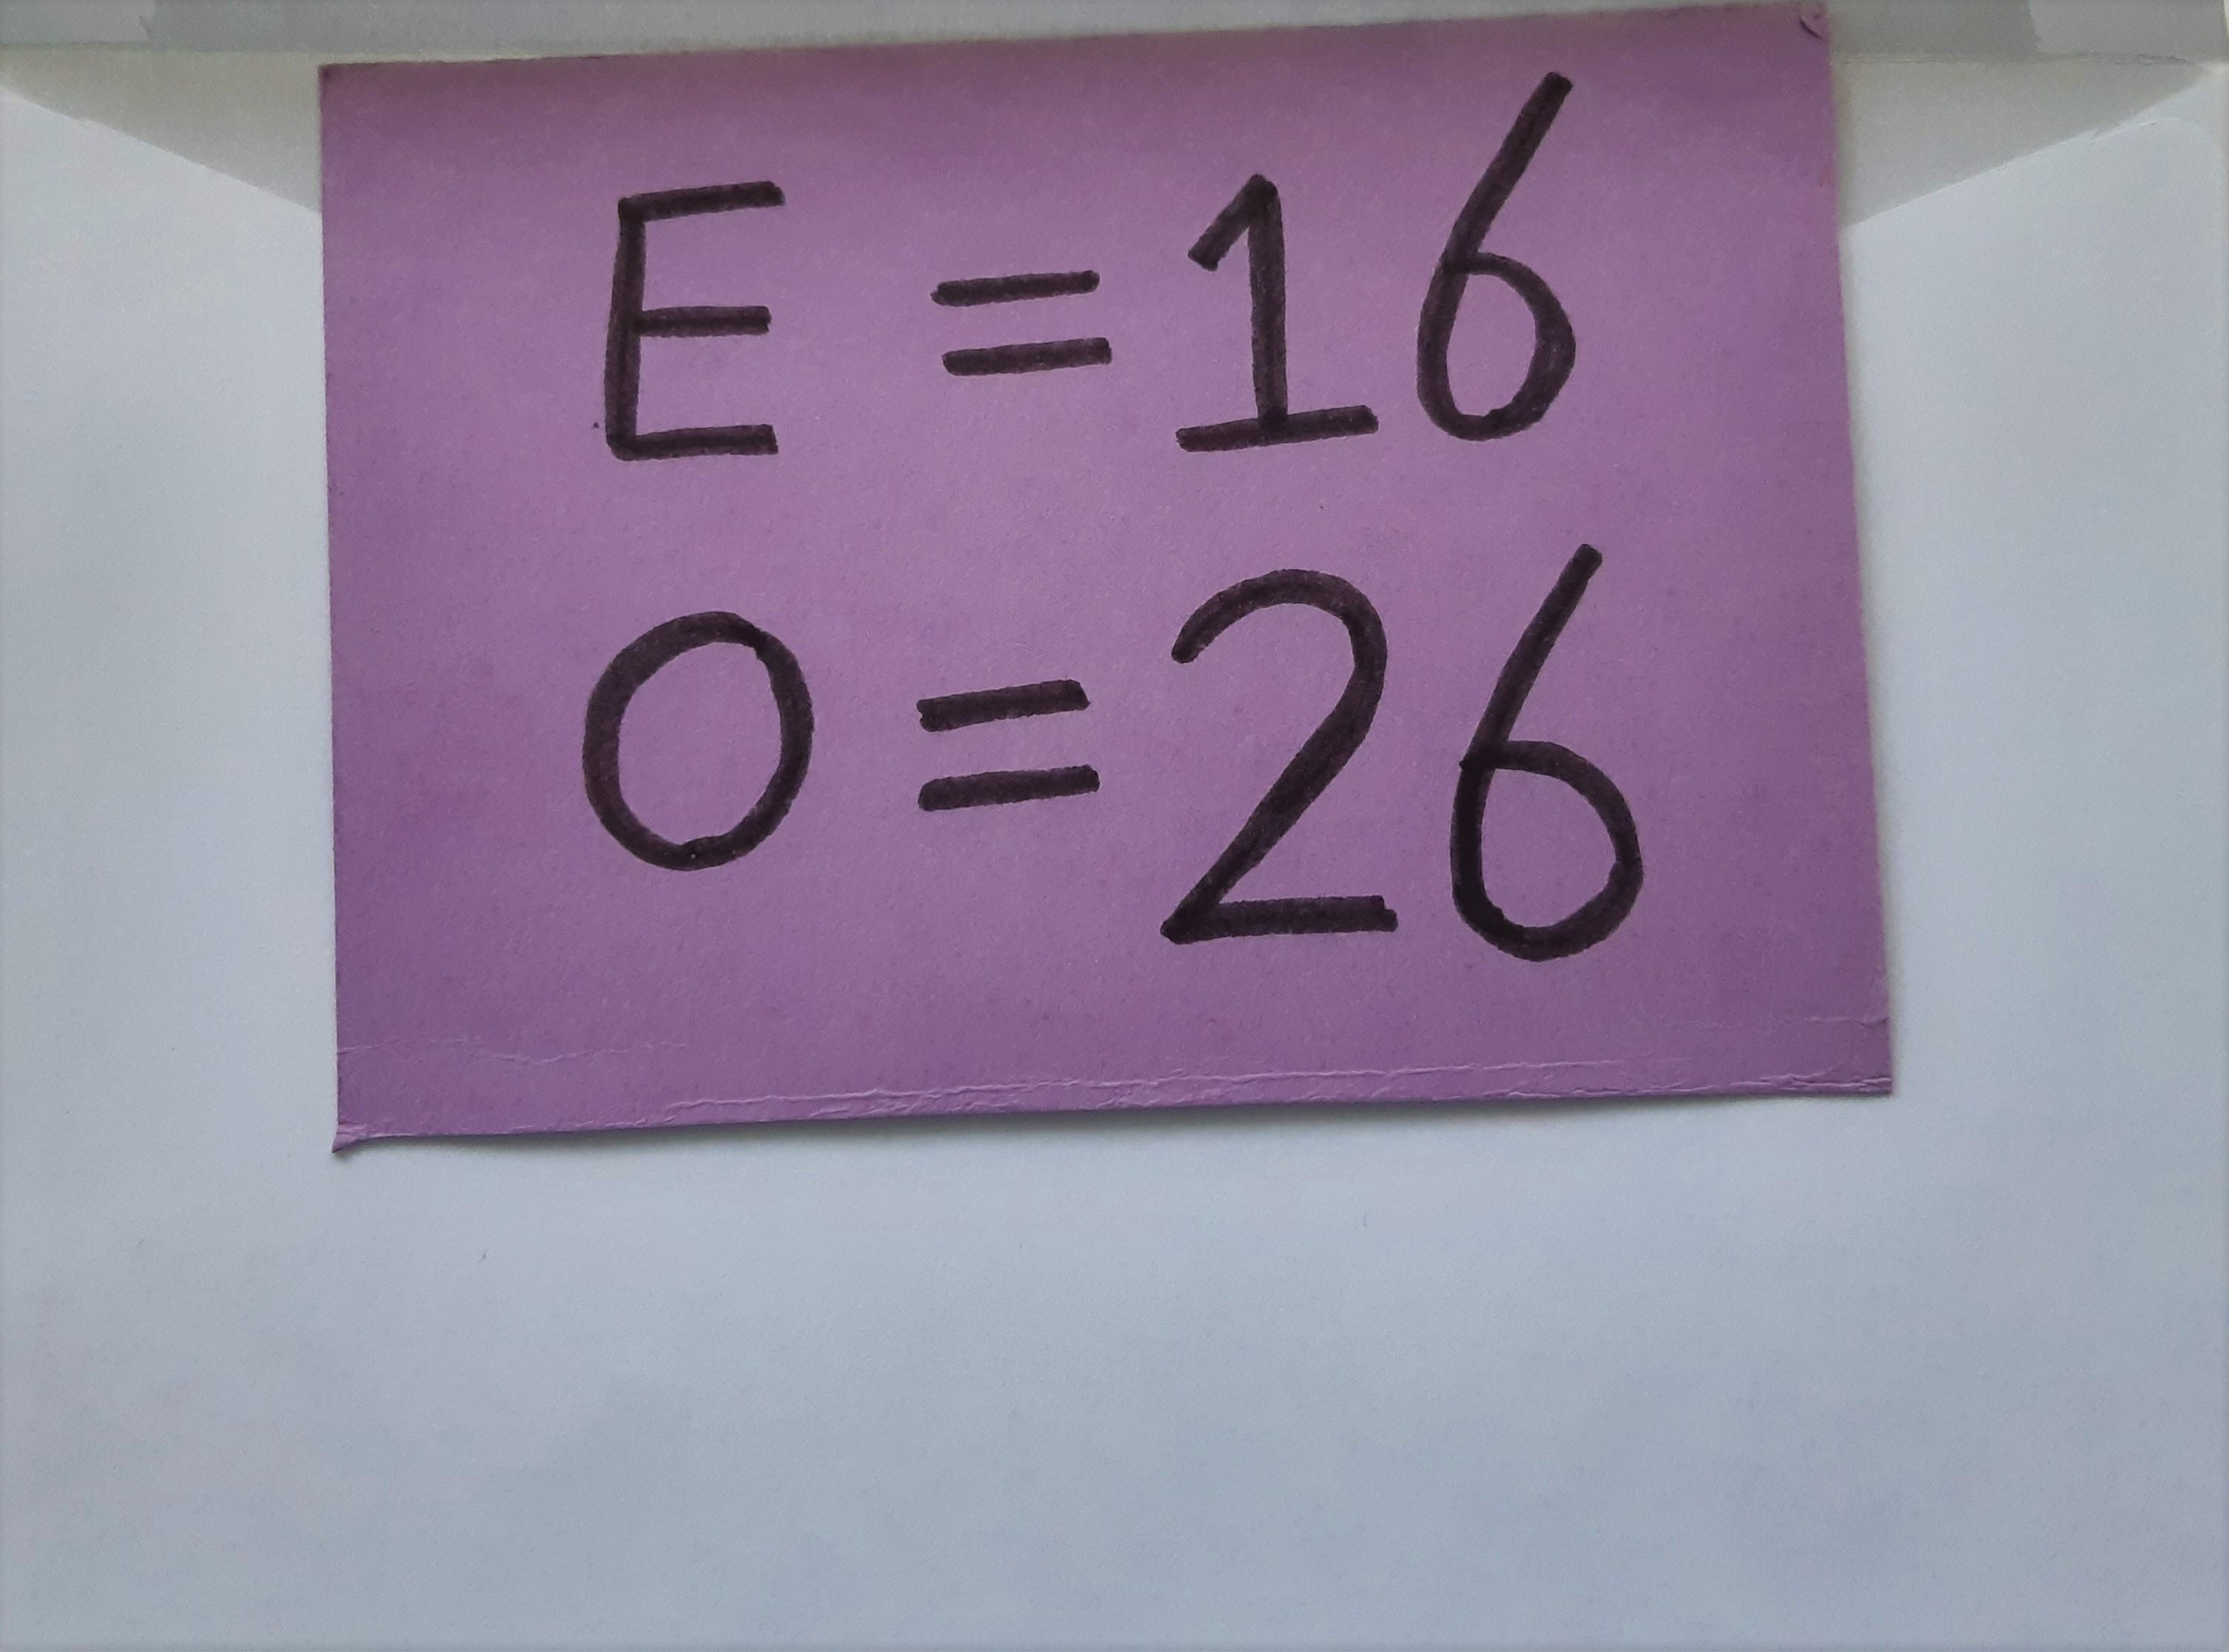 E = 16
O = 26